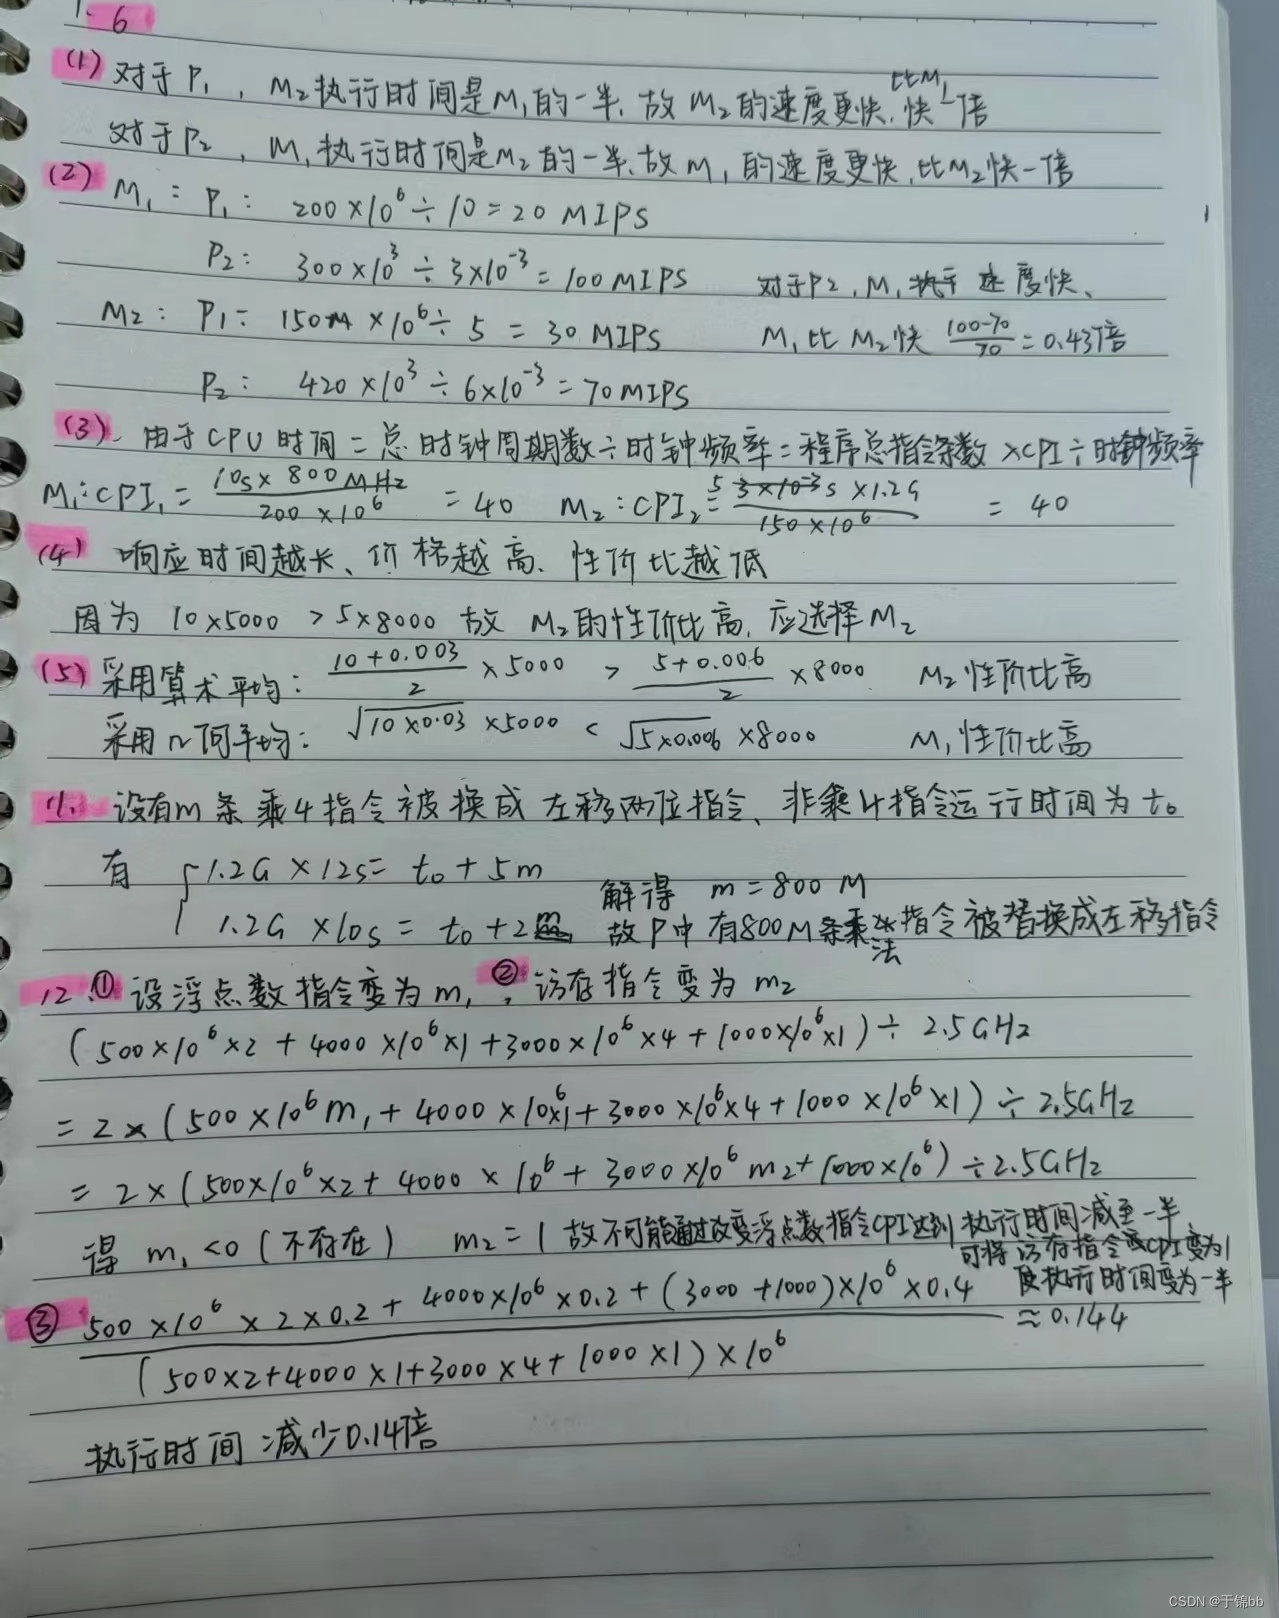 1. 6
(1) 对于P₁, M₂执行时间是M₁的一半.故M₂的速度更快,比M₁快一倍
对于P₂, M₁执行时间是M₂的一半.故M₁的速度更快,比M₂快一倍
(2) M₁: P₁: 200×10⁶÷10=20 MIPS
P₂: 300×10³÷3×10⁻³=100MIPS 对于P2, M₁执行速度快、
M₂: P₁: 150M×10⁶÷5=30 MIPS M₁比M₂快 (100-70)/70=0.43倍
P₂: 420×10³÷6×10⁻³=70MIPS
(3)、由于CPU时间=总时钟周期数÷时钟频率=程序总指令条数×CPI÷时钟频率
M₁:CPI₁= (10s×800MHz)/(200×10⁶) =40 M₂:CPI₂= (5s×1.2G)/(150×10⁶) = 40
(4) 响应时间越长、价格越高、性价比越低
因为 10×5000 > 5×8000 故 M₂的性价比高,应选择M₂
(5) 采用算术平均: (10+0.003)/2 ×5000 > (5+0.006)/2 ×8000 M₂性价比高
采用几何平均: √(10×0.03) ×5000 < √(5×0.006) ×8000 M₁性价比高
11. 设有m条乘4指令被换成左移两位指令、非乘4指令运行时间为t₀
有 { 1.2G×12s= t₀+5m
1.2G×10s= t₀+2m 解得 m=800 M
故P中有800M条乘法指令被替换成左移指令
12.① 设浮点数指令变为m₁, ② 访存指令变为m₂
(500×10⁶×2+4000×10⁶×1+3000×10⁶×4+1000×10⁶×1)÷2.5GHz
=2×(500×10⁶m₁+4000×10⁶×1+3000×10⁶×4+1000×10⁶×1)÷2.5GHz
=2×(500×10⁶×2+4000×10⁶+3000×10⁶m₂+1000×10⁶)÷2.5GHz
得 m₁<0(不存在) m₂=1 故不可能通过改变浮点数指令CPI达到执行时间减至一半
可将访存指令CPI变为1
使执行时间变为一半
③ (500×10⁶×2×0.2+4000×10⁶×0.2+(3000+1000)×10⁶×0.4)/((500×2+4000×1+3000×4+1000×1)×10⁶) ≈0.144
执行时间减少0.14倍
CSDN @于锦bb